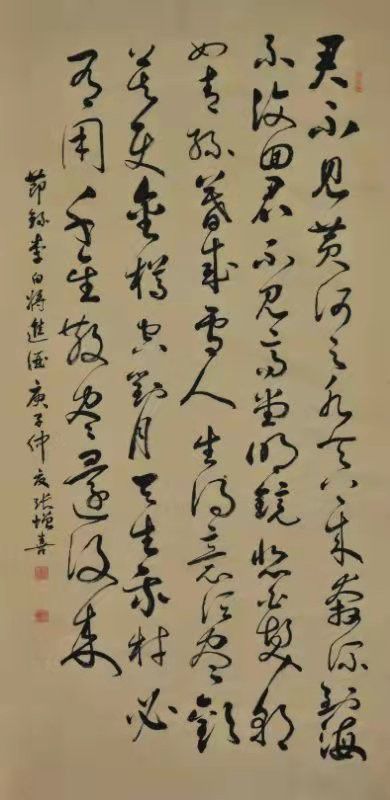 君不見黃河之水天上來奔流到海
不復回君不見高堂明鏡悲白髮朝
如青絲暮成雪人生得意須盡歡
莫使金樽空對月天生我材必
有用千金散盡還復來
節錄李白將進酒庚子仲夏張增喜